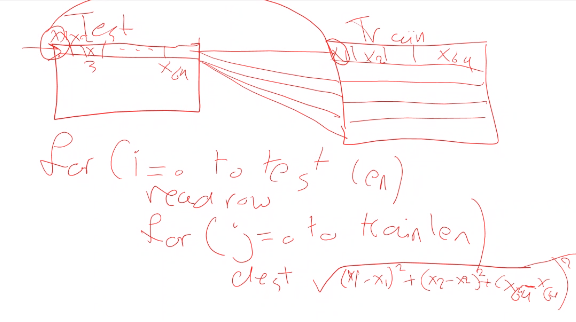 Test
Train
x1 x2 x3 ---- x64
x1 x2 x64
for (i=0 to test len)
read row
for (j=0 to train len)
dest √(x1-x1)²+(x2-x2)²+(x64-x64)²